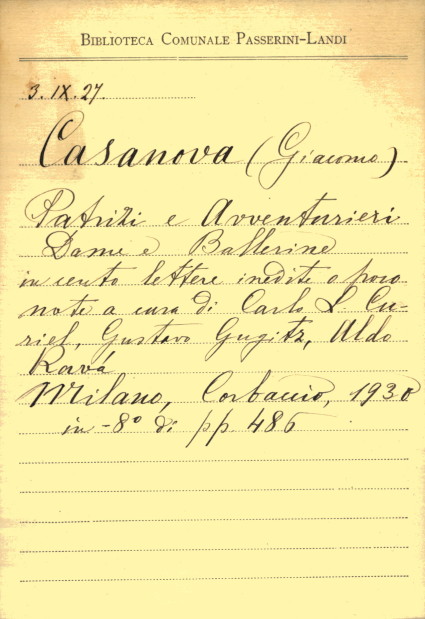 BIBLIOTECA COMUNALE PASSERINI-LANDI
3.IX.27.
Casanova (Giacomo)
Patrizi e Avventurieri
Dame e Ballerine
in cento lettere inedite o poco
note a cura di Carlo L Cu-
riel, Gustavo Gugitz, Aldo
Ravá
Milano, Corbaccio, 1930
in-8° di pp. 486